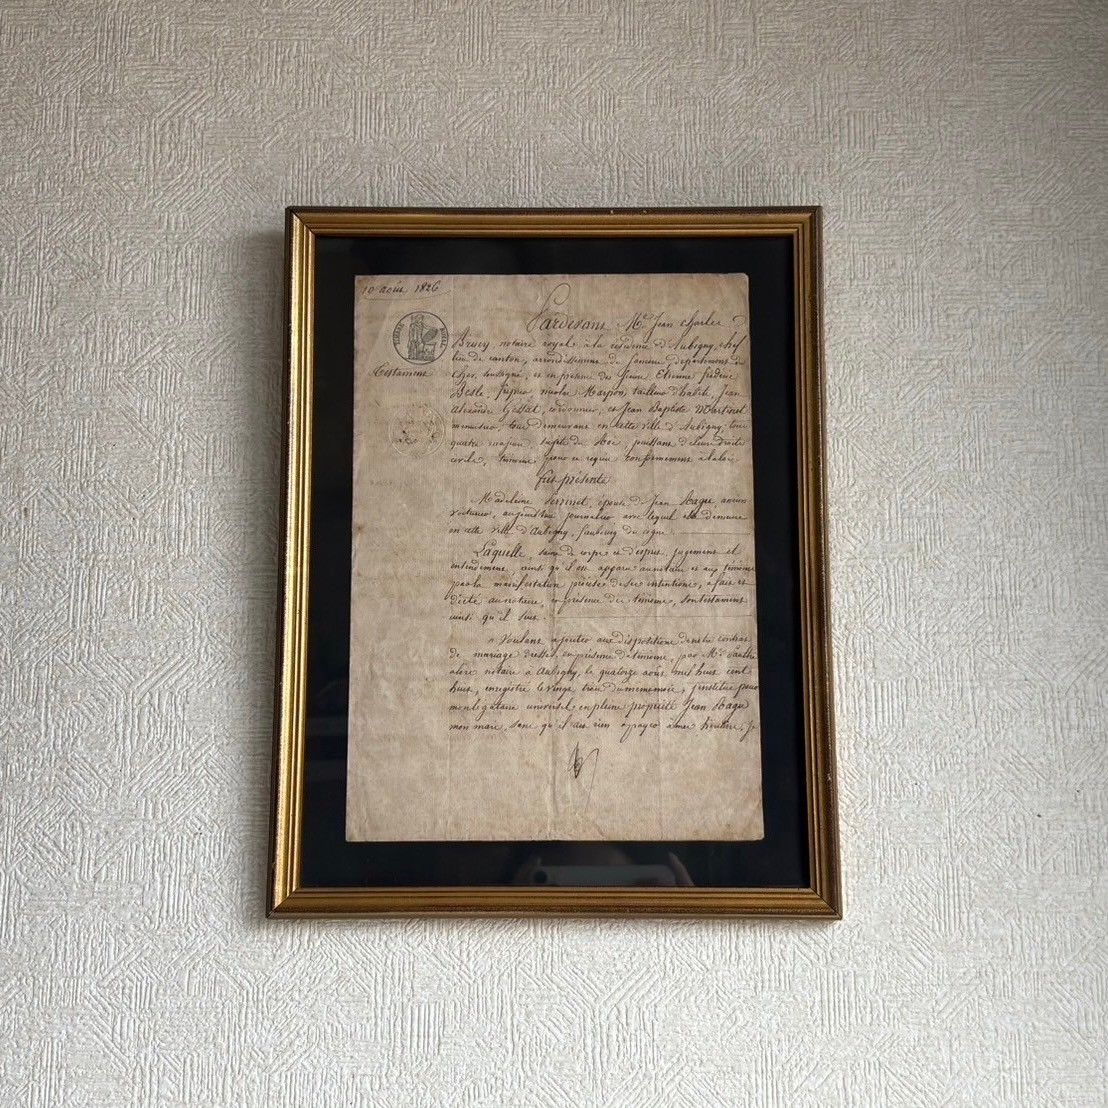 10 août 1826
TIMBRE ROYAL
Testament
Pardevant Me. Jean Charles
notaire royal à la résidence d'Aubigny, chef
lieu de canton, arrondissement de Sancerre département du
Cher, soussigné, et en présence des Sieurs Etienne
nicolas tailleur d'habits, Jean
alexandre cordonnier, et Jean Baptiste Martinet
menuisier, tous demeurans en cette ville d'Aubigny, tous
quatre majeurs, sujets du Roi, jouissans de leurs droits
civils, témoins pour ce requis conformément à la loi
fut présente
Madeleine épouse de Jean
voiturier, aujourd'hui journalier avec lequel elle demeure
en cette ville d'Aubigny, faubourg du cigne
Laquelle, saine de corps et d'esprit, jugement et
entendement, ainsi qu'il est apparu au notaire et aux témoins
par la manifestation précise de ses intentions, a fait et
dicté au notaire, en présence des témoins, son testament
ainsi qu'il suit.
« Voulant ajouter aux dispositions de notre contrat
de mariage dressé, en présence de témoins, par Me.
alors notaire à Aubigny, le quatorze août mil huit cent
huit, enregistré le vingt trois du même mois, j'institue pour
mon légataire universel en pleine propriété Jean
mon mari, sans qu'il ait rien à payer à mes héritiers, je